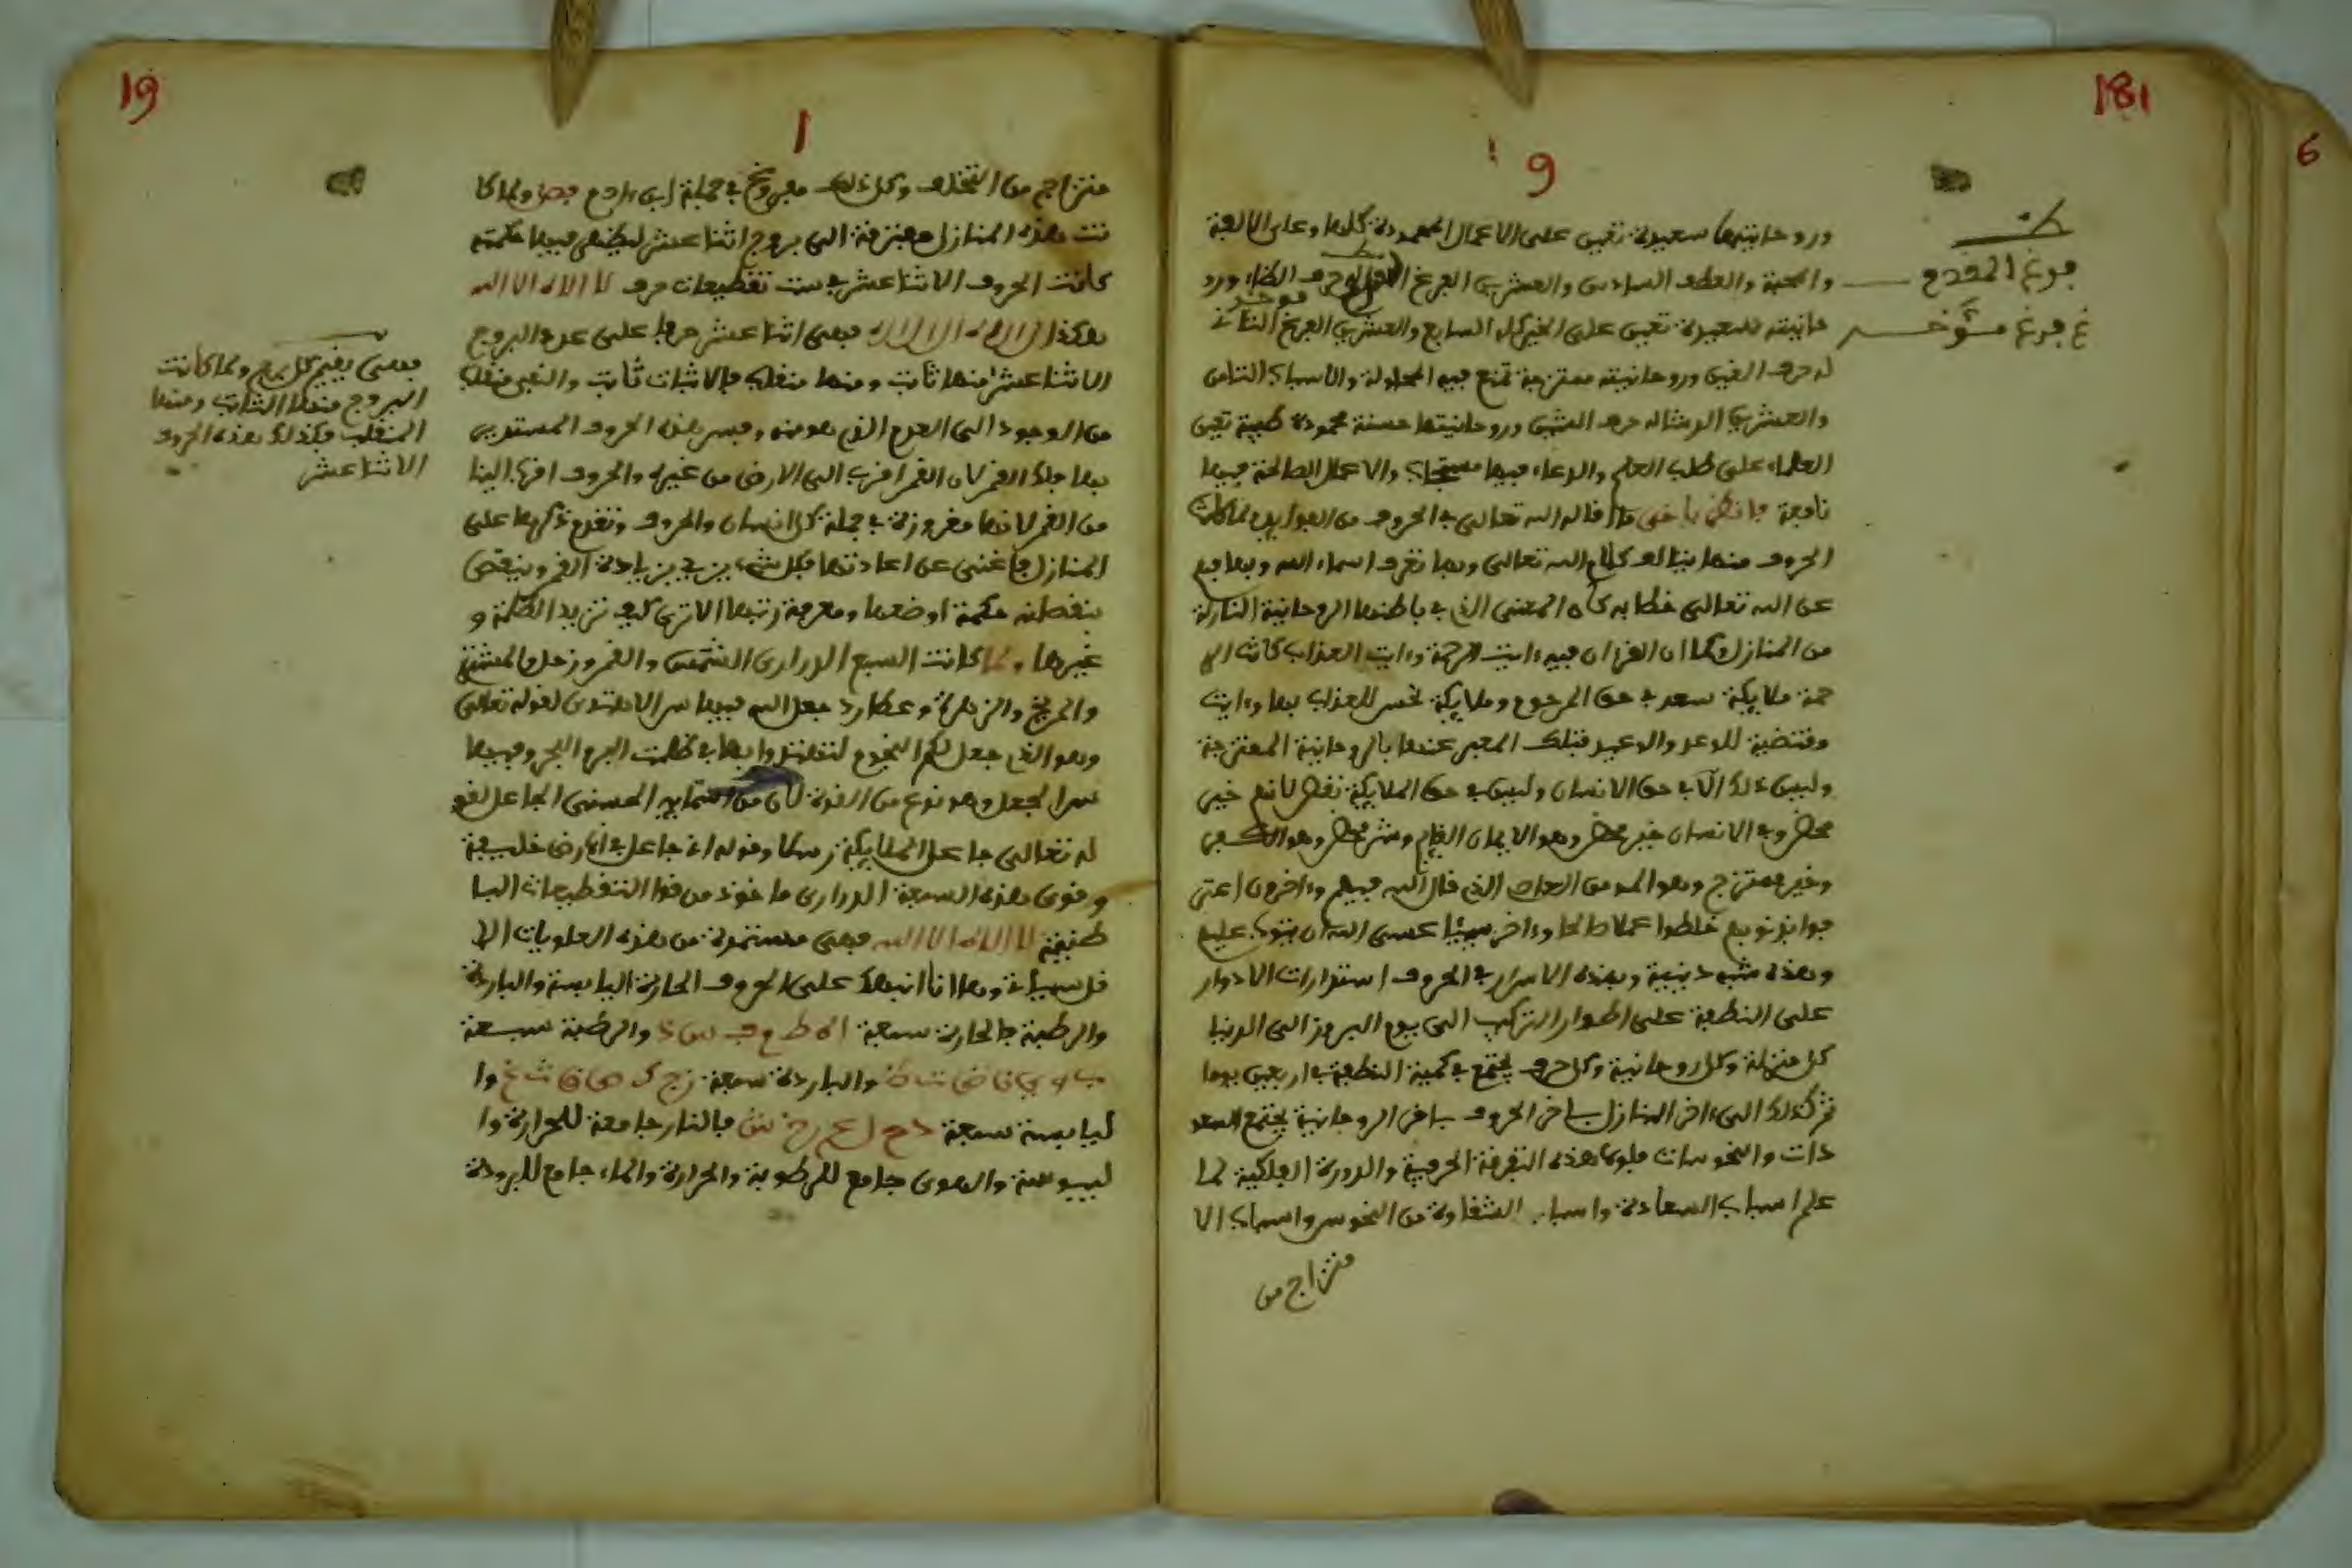 181
6
9
ظ
فرغ المقدم
غ فرغ مؤخر
وروحانيتها سعيدة تعين على الاعمال المحمودة كلها وعلى الالفة
والمحبة والعطف السادس والعشرين الفرغ الاول له حرف الظاء ورو
حانيته سعيدة تعين على الخير كله السابع والعشرين الفرغ الثاني
مؤخر
له حرف الغين وروحانيته ممتزجة تمنع فيه المحاولة والاسباب الثامن
والعشرين الرشا له حرف الشين وروحانيتها حسنة محمودة طيبة تعين
العلماء على طلب العلم والدعاء فيها مستجاب والاعمال الصالحة فيها
نافعة فانظر يا اخي ما قاله الله تعالى في الحروف من العوايد لما كانت
الحروف منها يتالف كلام الله تعالى وبها تعرف اسماء الله وبها فهم
عن الله تعالى خطابه كان المعنى الذي في باطنها الروحانية النازلة
من المنازل كما ان القران فيه ءايت الرحمة وءايت العذاب كانت الر
حمة ملايكة سعد في حق المرحوم وملايكة نحس للعذاب بها وءايت
مقتضية للوعد والوعيد فتلك المعبر عنها بالروحانية الممتزجة
وليس ذلك الا في حق الانسان وليس في حق الملايكة نقص لانهم خير
محض وفي الانسان خير محض وهو الايمان القايم وشر محض وهو الكفر
وخير ممتزج وهو المومن العاصي الذي قال الله فيهم وءاخرون اعتر
فوا بذنوبهم خلطوا عملا صالحا وءاخر سيئا عسى الله ان يتوب عليهم
وهذه شبه دينية وبهذه الاسرار في الحروف استدارات الادوار
على النطفة على اطوار التركيب الى يوم البروز الى الدنيا
كل منزلة وكل روحانية وكل حرف يجتمع في كمية النطفة في اربعين يوما
ثم كذلك الى ءاخر المنازل باخر الحروف باخر الروحانية يجتمع السعو
دات والنحوسات فلولا هذه التفرقة الحرفية والدورة الفلكية لما
علم اسباب السعادة واسباب الشقاوة من النحوس واسباب الا
متزاج من
19
1
متزاجم من التخلف وكل ذلك مفروغ في جملة ابن ءادم فصل ولما كا
نت هذه المنازل مفترقة الى بروج اثنا عشر ليظهر فيها حكمته
كانت الحروف الاثنا عشر في ست تقطيعات حرف لا اله الا الله
هكذا ل ا ا ل ه ا ل ا ا ل ل ه فهي اثنا عشر حرفا على عدد البروج
الاثنا عشر منها ثابت ومنها منقلب فالاثبات ثابت والنفي منقلب
من الوجود الى العدم الذي هو منه وفسر هذه الحروف المستمدين
بها فلك القمر لان القمر اقرب الى الارض من غيره والحروف اقرب الينا
من القمر لانها مغروزة في جملة كل انسان والحروف وتقدم ذكرها على
المنازل فاغنى عن اعادتها فكل شيء يزيد بزيادة القمر وينقص
بنقصانه حكمة اوضعها ومعرفة رتبها الا ترى كيف تزيد الظلمة و
غيرها ولما كانت السبع الدراري الشمس والقمر وزحل والمشتر
والمريخ والزهرة وعطارد جعل الله فيها سر الاهتدى لقوله تعالى
وهو الذي جعل لكم النجوم لتهتدوا بها في ظلمت البر والبحر وفيها
سر الجعل وهو نوع من القوة لان من اسمايه الحسنى الجاعل لقو
له تعالى جاعل الملايكة رسلا وقوله اني جاعل في الارض خليفة
وقوى هذه السبعة الدراري ماخوذ من قوا التقطيعات البا
طنية لا اله الا الله فهي مستمدة من هذه العلويات الا
فل سبعة وها انا انبهك على الحروف الحارة اليابسة والباردة
والرطبة فالحارة سبعة ا ه ط م ف س ذ والرطبة سبعة
ب و ي ن ض ت ظ والباردة سبعة ز ج ك ص ق ث غ وا
ليابسة سبعة د ح ل ع ر خ ش فالنار جامعة للحرارة وا
ليبوسة والهوى جامع للرطوبة والحرارة والماء جامع للبرودة
فهي يفتح كل برج ولما كانت
البروج منها الثابت ومنها
المنقلب فكذلك هذه الحروف
الاثنا عشر